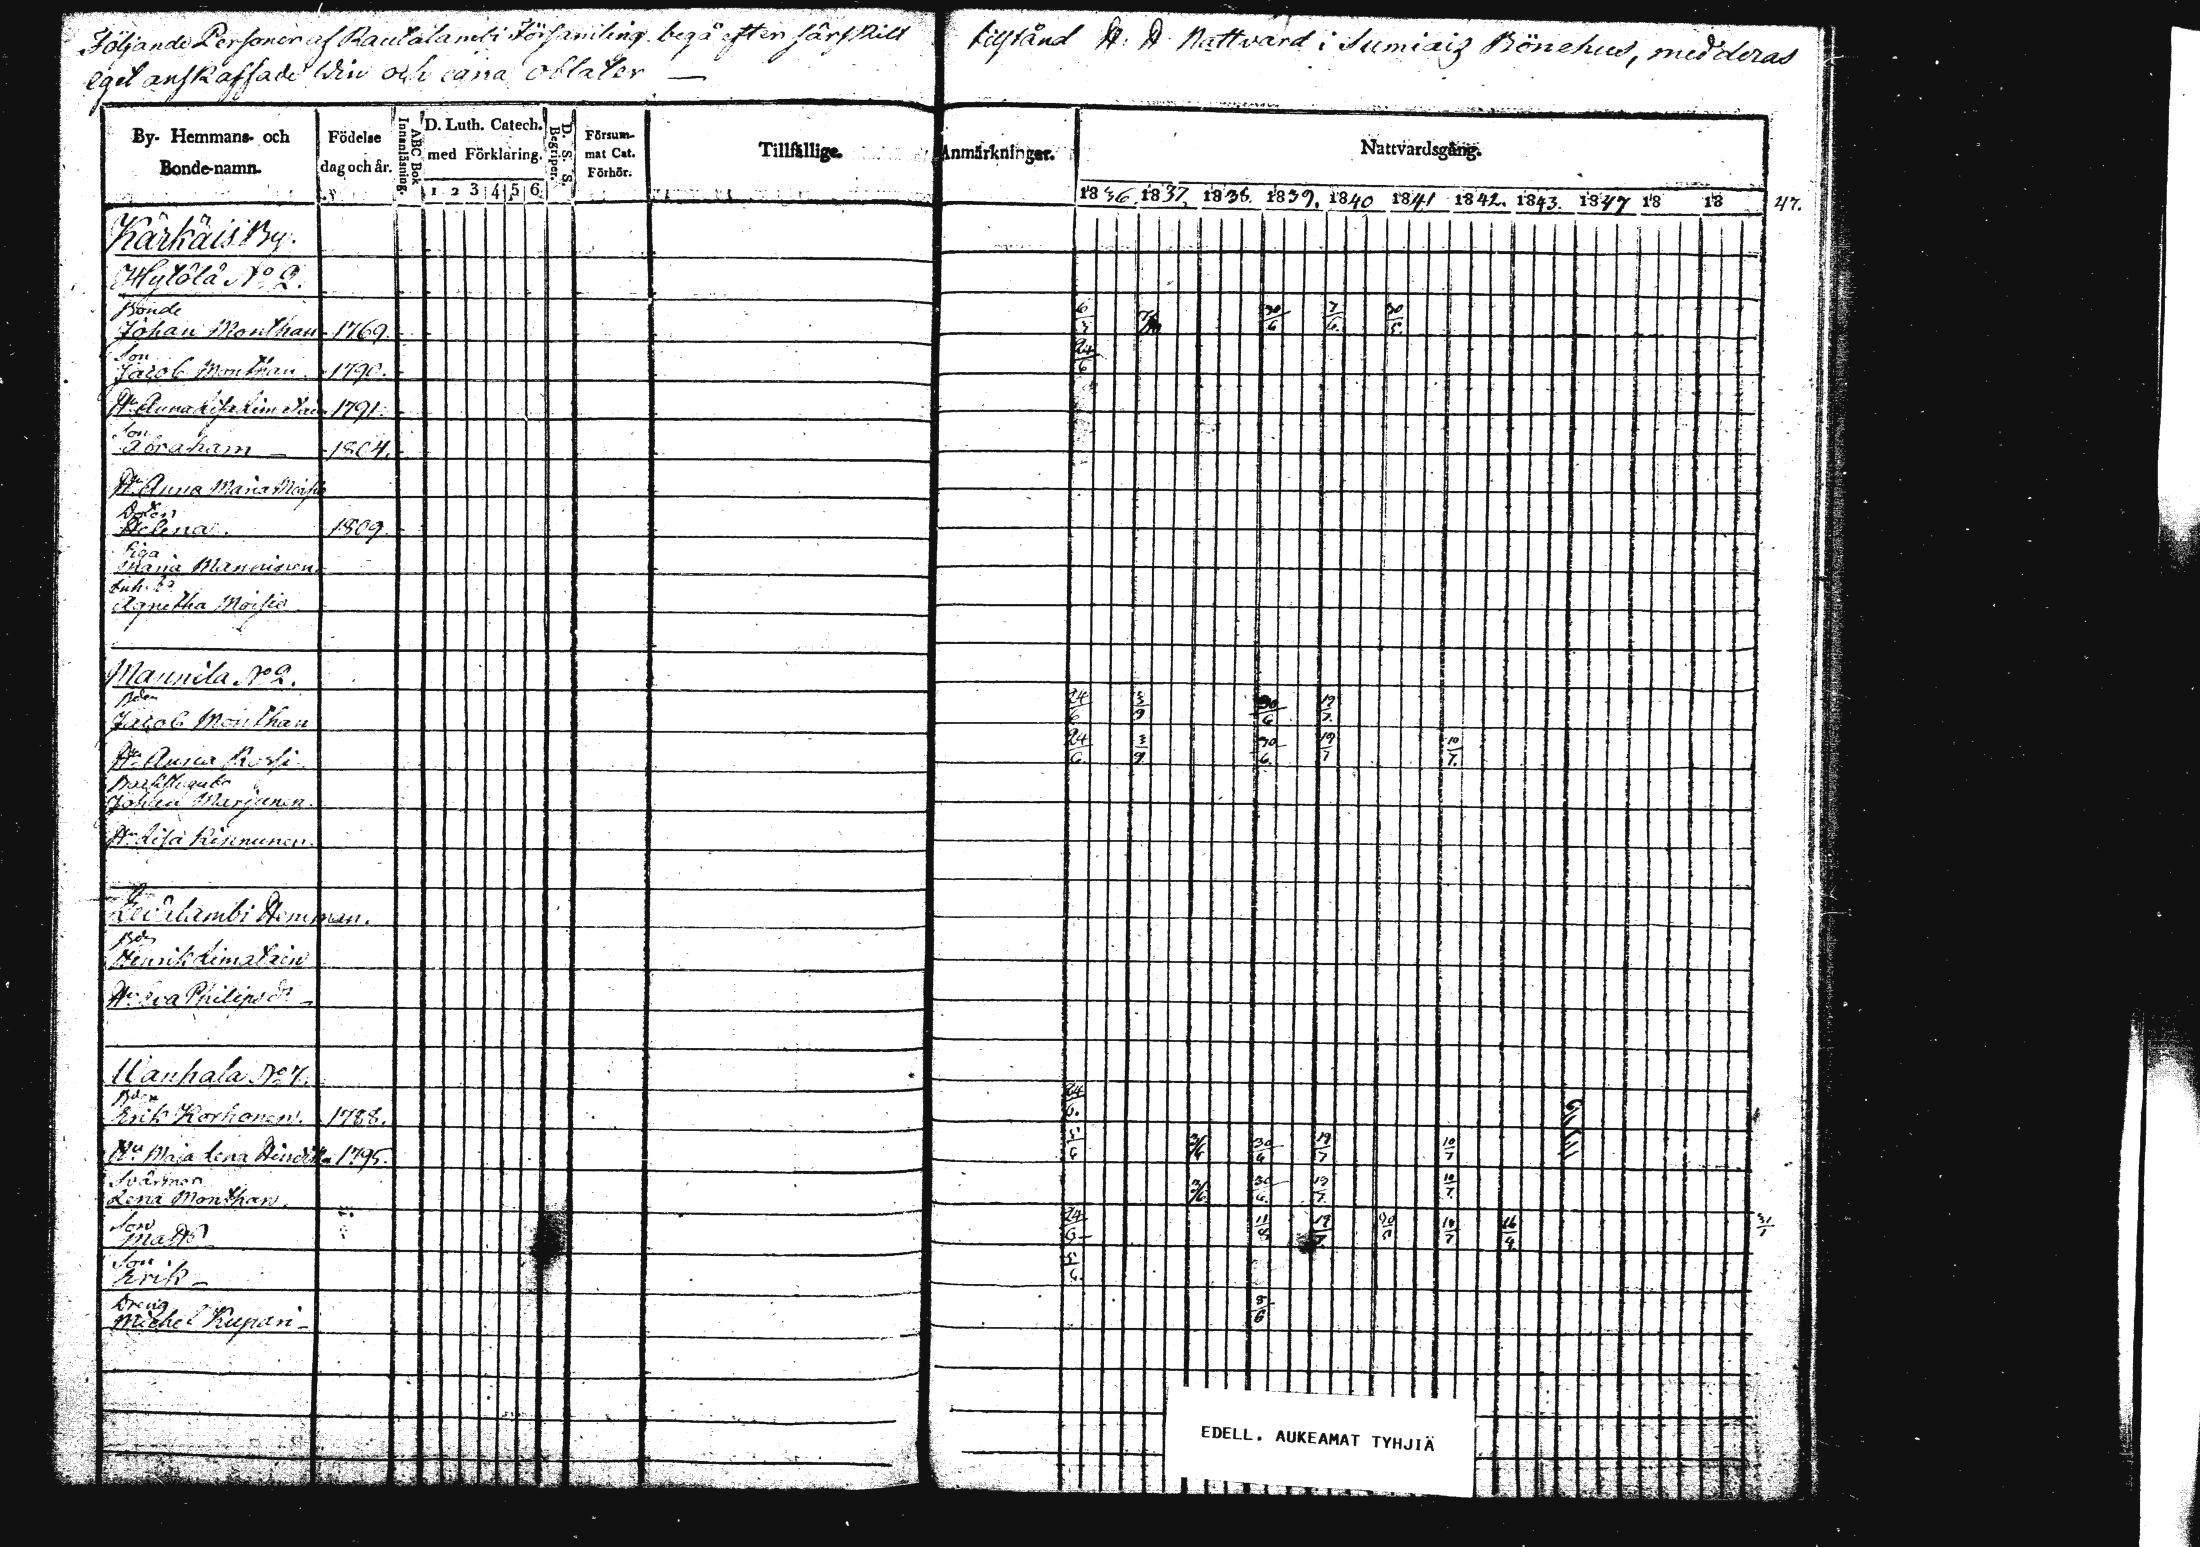 Följande Personer af Rautalambi Församling begå efter särskilt tillstånd H. H. Nattvard i Sumiais Bönehus, med deras
eget anskaffade Win och egna oblater —
By- Hemmans- och Bonde-namn.
Födelse dag och år.
ABC Bok Innanläsning.
D. Luth. Catech. med Förklaring.
1 2 3 4 5 6
D. S. S. Begriper.
Försummat Cat. Förhör.
Tillfällige.
Anmärkningar.
Nattvardsgång.
1836. 1837. 1838. 1839. 1840 1841 1842. 1843. 1847 18 18 47.
Kärkäis By.
Hytölä No 2.
Bonde
Johan Monthan 1769. 30/6 7/6 30/5
Son
Jacob Monthan 1790. 24/6
Hu Anna Lisa Limatain 1791.
Son
Abraham — 1804.
Hu Anna Maria Moisio
Dotren
Helena. 1809
Piga
Maria Manninen
Agnetha Moisio
Mannila No 2.
Bden
Jacob Monthan 24/6 3/9 30/6 19/7
Hu Anna Rossi 24/6 3/9 30/6 19/7 10/7.
Johan Marjanen
Hu Lisa Kinnunen
Levälambi Hemman.
Bdn
Henrik Limatain
Hu Eva Philipsdr —
Wanhala No 7.
Bden
Erik Korhonen. 1788. 24/6.
Hu Maja Lena Hindr 1795. 3/6 30/6 19/7 10/7
Svärmor
Lena Monthan. 3/6 30/6. 19/7 10/7
Son
Matts 24/6 11/8 19/7 30/5 10/7 16/9
Son
Erik —
Dreng
Michel Kupari — 8/6
EDELL. AUKEAMAT TYHJIÄ